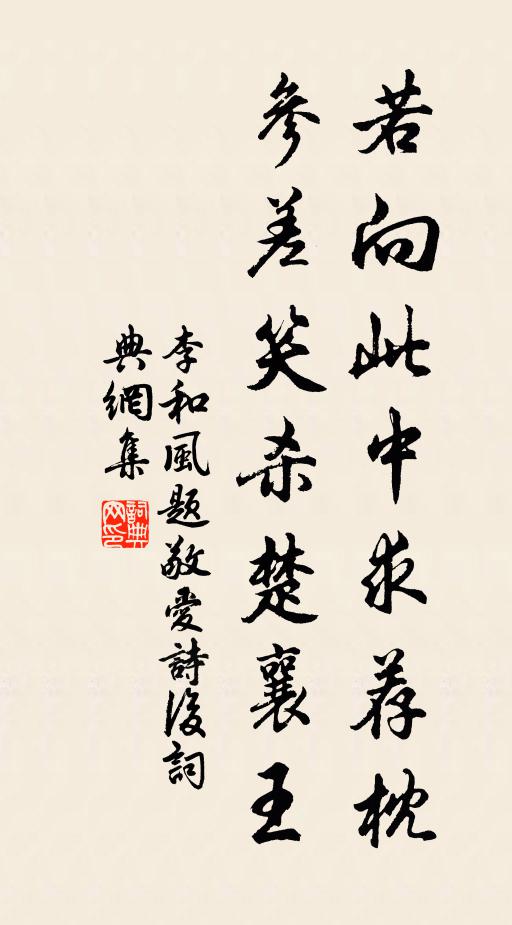 若向此中求荐枕
參差笑杀楚襄王
李和風题敬愛詩後詞
典網集
詞典网印